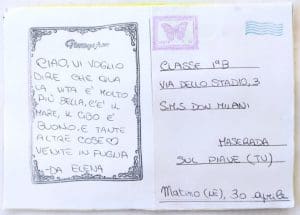 CIAO, VI VOGLIO
DIRE CHE QUA
LA VITA È MOLTO
PIÙ BELLA, C'È IL
MARE, IL CIBO È
BUONO, E TANTE
ALTRE COSE♡
VENITE IN PUGLIA
-DA ELENA
CLASSE 1ªB
VIA DELLO STADIO, 3
S.M.S DON MILANI
MASERADA
SUL PIAVE (TV)
Matino (LE), 30 aprile